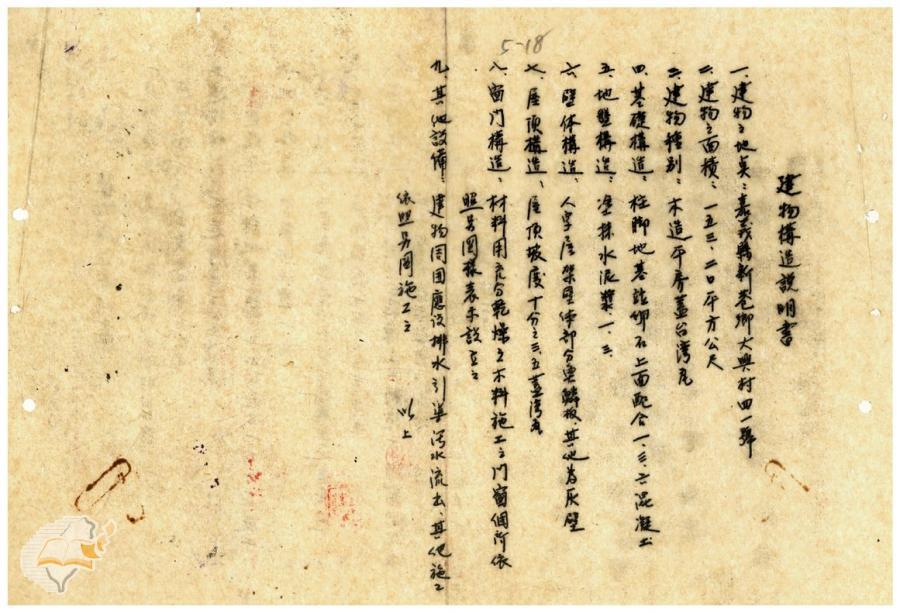 5-18
建物構造説明書
一、建物之地點：嘉義縣新巷鄉大興村四一號
二、建物之面積：一五三、二〇平方公尺
三、建物種別：木造平房蓋台湾瓦
四、基礎構造：柱脚地基 卵石上面配合一、三、六混凝土
五、地盤構造：塗抹水泥漿、一、三、
六、壁体構造、人字屋架壁体部分魚鱗板、其他為灰壁
七、屋頂構造、屋頂坡度十分之三、五蓋台湾瓦
八、窗門構造、材料用充分乾燥之木料施工之門窗個所依
照另圖様表示設立之
九、其他設備：建物周囲應設排水引導汚水流去、其他施工
依照另圖施工之
以上